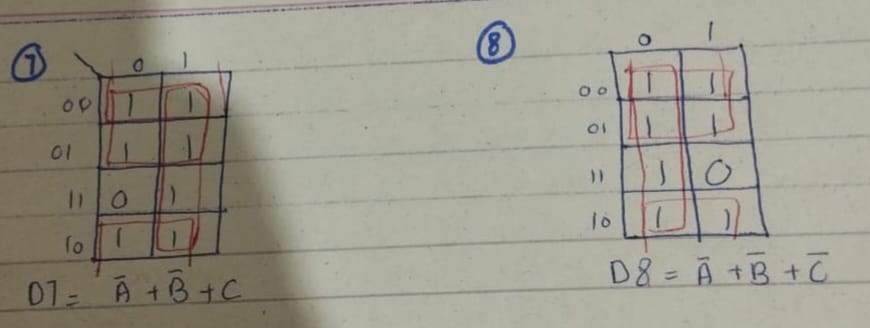 7
0 1
00 1 1
01 1 1
11 0 1
10 1 1
D7 = A̅ + B̅ + C
8
0 1
00 1 1
01 1 1
11 1 0
10 1 1
D8 = A̅ + B̅ + C̅